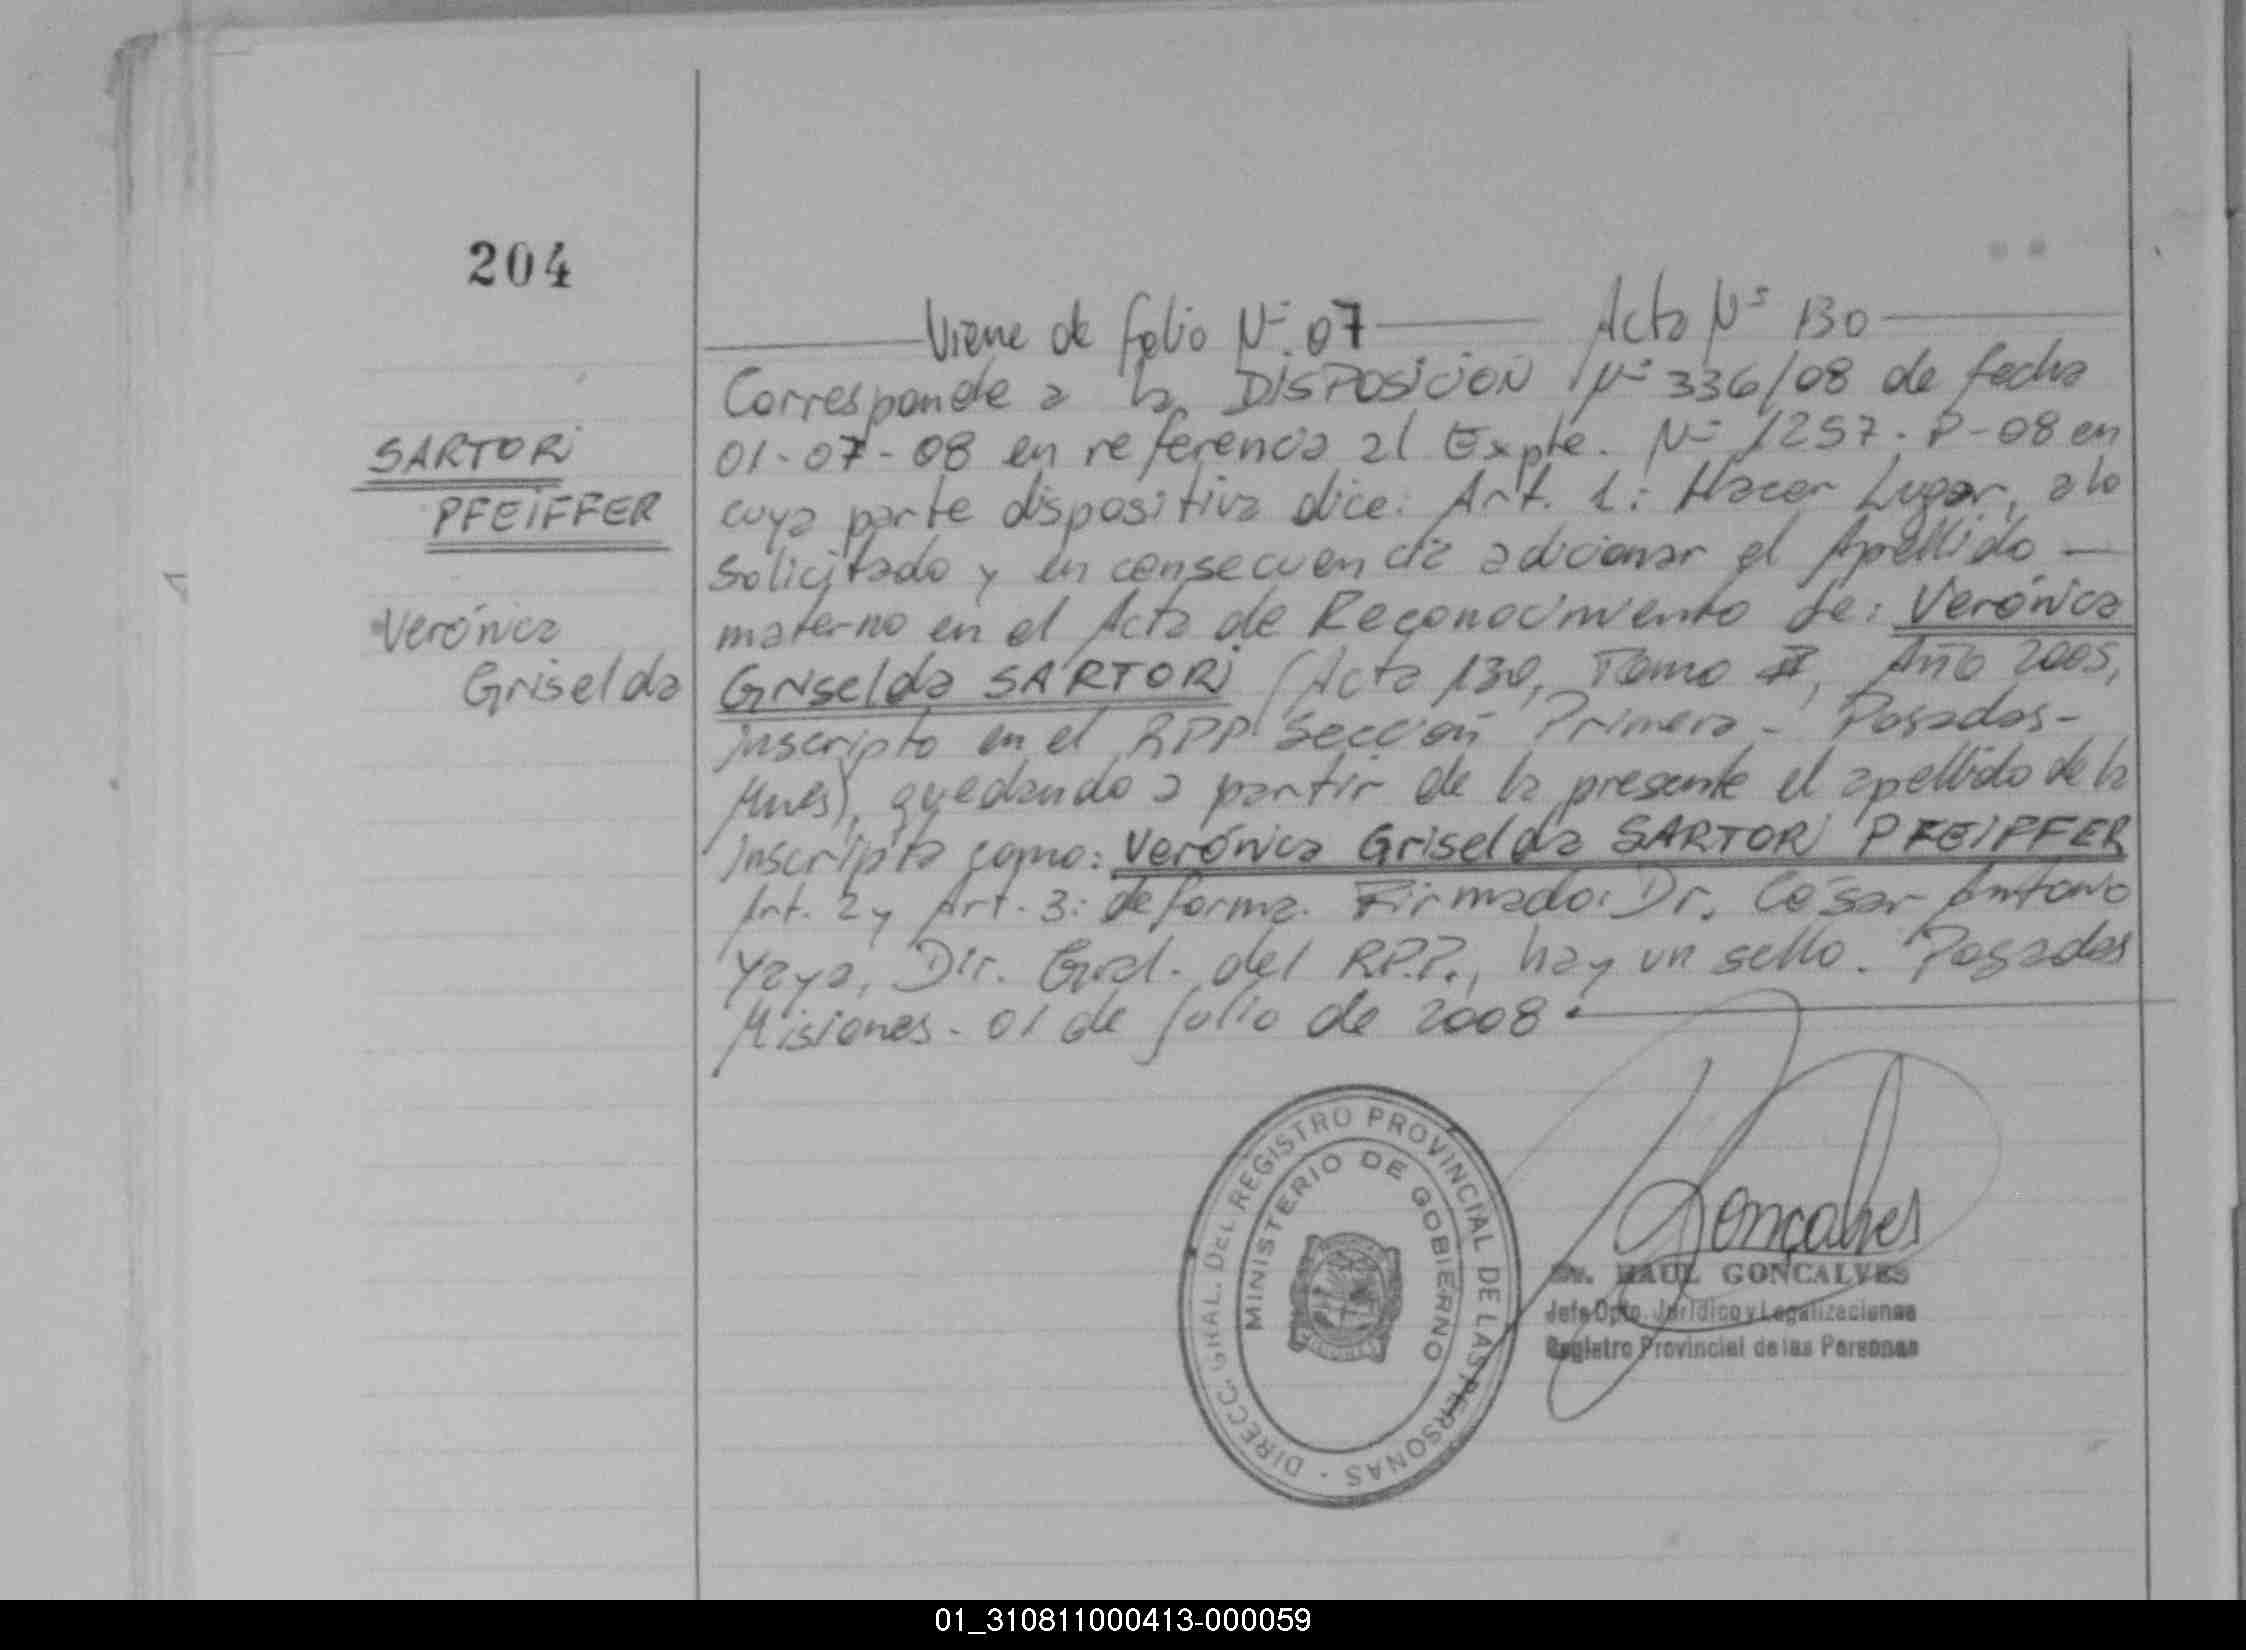 204
Viene de folio Nº 07 Acta Nº 130
Corresponde a la DISPOSICION Nº 336/08 de fecha
SARTORI
01-07-08 en referencia al Expte. Nº 1257-P-08 en
PFEIFFER
cuya parte dispositiva dice: Art. 1: Hacer Lugar, a lo
solicitado y en consecuencia adicionar el Apellido —
Verónica
materno en el Acta de Reconocimiento de: Verónica
Griselda
Griselda SARTORI (Acta 130, Tomo II, Año 2005,
inscripto en el RPP Sección Primera - Posadas-
Mnes), quedando a partir de la presente el apellido de la
inscripta como: Verónica Griselda SARTORI PFEIFFER
Art. 2 y Art. 3: de forma. Firmado: Dr. César Antonio
Yaya, Dir. Gral. del R.P.P., hay un sello. Posadas
Misiones - 01 de Julio de 2008.
DIRECC. GRAL. DEL REGISTRO PROVINCIAL DE LAS PERSONAS
MINISTERIO DE GOBIERNO
Goncalves
RAUL GONCALVES
Jefe Dpto. Jurídico y Legalizaciones
Registro Provincial de las Personas
01_310811000413-000059